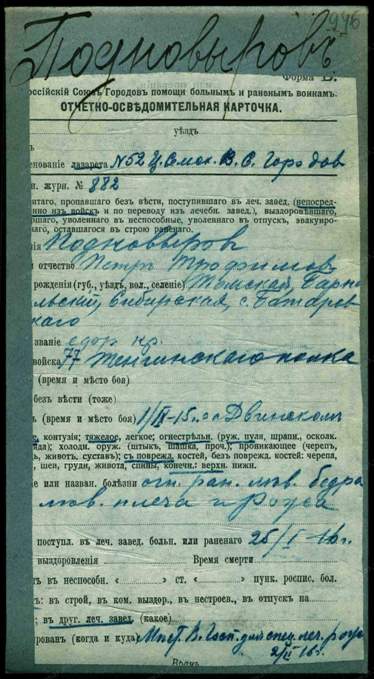 946
Подновыровъ
Форма Б.
оссійскій Союзъ Городовъ помощи больнымъ и раненымъ воинамъ.
ОТЧЕТНО-ОСВѢДОМИТЕЛЬНАЯ КАРТОЧКА.
уѣздъ
ъ
енованіе лазарета N52 В. С. Городов
н. журн. № 882
итаго, пропавшаго безъ вѣсти, поступившаго въ леч. завед. (непосред-
нно изъ войскъ и по переводу изъ лечебн. завед.), выздоровѣвшаго,
шаго, уволеннаго въ неспособные, уволеннаго въ отпускъ, эвакуиро-
аго, оставшагося въ строю раненаго.
ія Подновыров
и отчество Петръ Трофимов
рожденія (губ., уѣздъ, вол., селеніе) Томская, Барна
ульскій, с. Батуров
каго
званіе ефр
войска 77 Тенгинскаго полка
(время и мѣсто боя)
безъ вѣсти (тоже)
(время и мѣсто боя) 1/IX-15 г. Двинском
контузія; тяжелое, легкое; огнестрѣльн. (руж. пуля, шрапн., осколк.
яда); холодн. оруж. (штыкъ, шашка, проч.); проникающее (черепъ,
ь, животъ, суставъ); съ поврежд. костей, безъ поврежд. костей: черепа,
, шеи, груди, живота, спины, конечн.: верхн. нижн.
іе или назван. болѣзни огн. ран. лѣв. бедра
лѣв. плеча и рожа
поступл. въ леч. завед. больн. или раненаго 25/I-16 г.
выздоровленія Время смерти
ъ въ неспособн. « » ст. « » пунк. роспис. бол.
ъ: въ строй, въ ком. выздор., въ нестроев., въ отпускъ на
; въ друг. леч. завед. (какое)
ированъ (когда и куда) В. Госп. для леч. рожи
2/II 16 г.
Врачъ